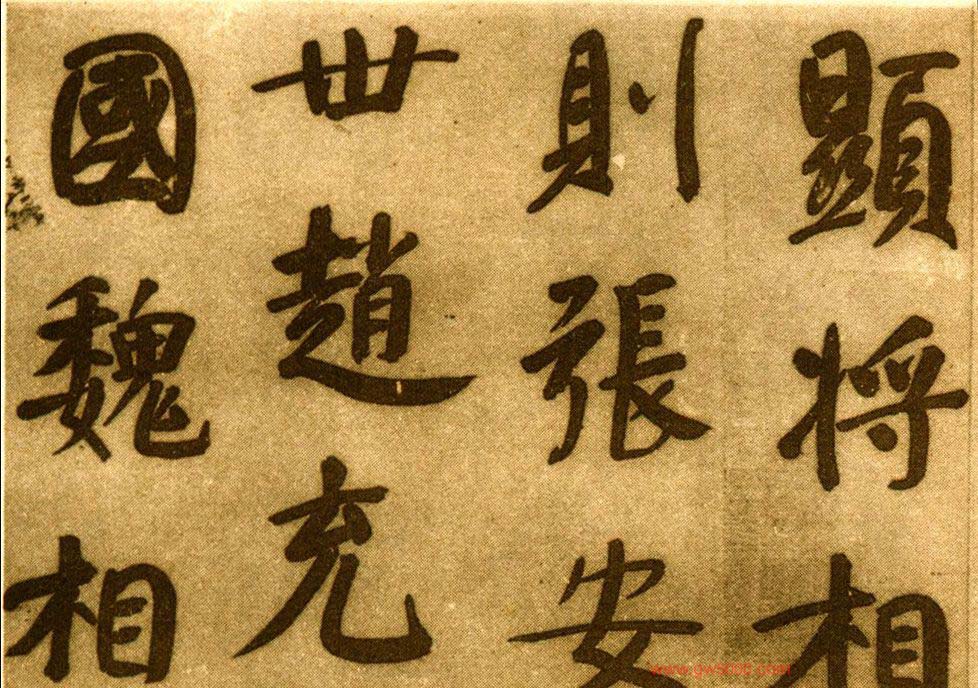 顯將相
則張安
世趙充
國魏相